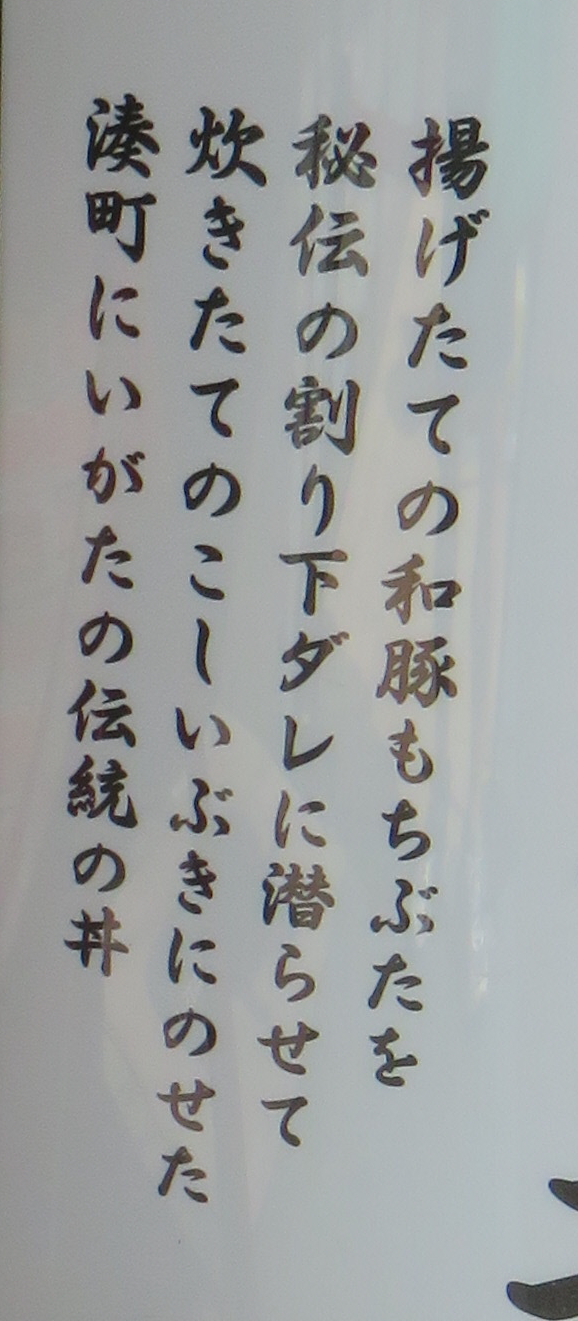 揚げたての和豚もちぶたを
秘伝の割り下ダレに潜らせて
炊きたてのこしいぶきにのせた
湊町にいがたの伝統の丼